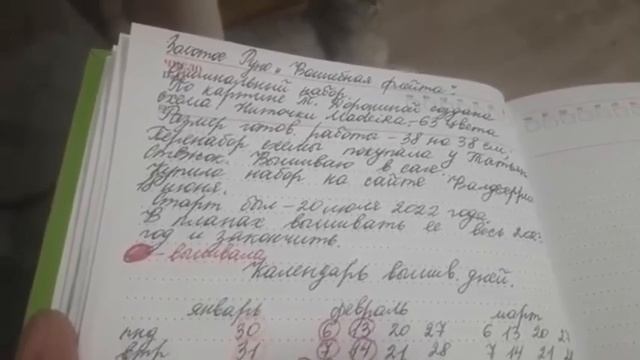 Золотое Руно „Волшебная флейта".
Оригинальный набор.
По картине Т. Дорониной создана
схема Ниточки Madeira - 63 цвета
Размер готов. работа - 38 на 38 см.
Перенабор схемы покупала у Татьян
Стежок. Вышиваю в сале
Купила набор на сайте
18 июня.
Старт был - 20 июля 2022 года.
В планах вышивать ее весь
год и закончить.
- вышивала
Календарь вышив. дней.
январь февраль март
пнд 30 6 13 20 27 6 13 20
втр 31 7 14 21 28 7 14 21